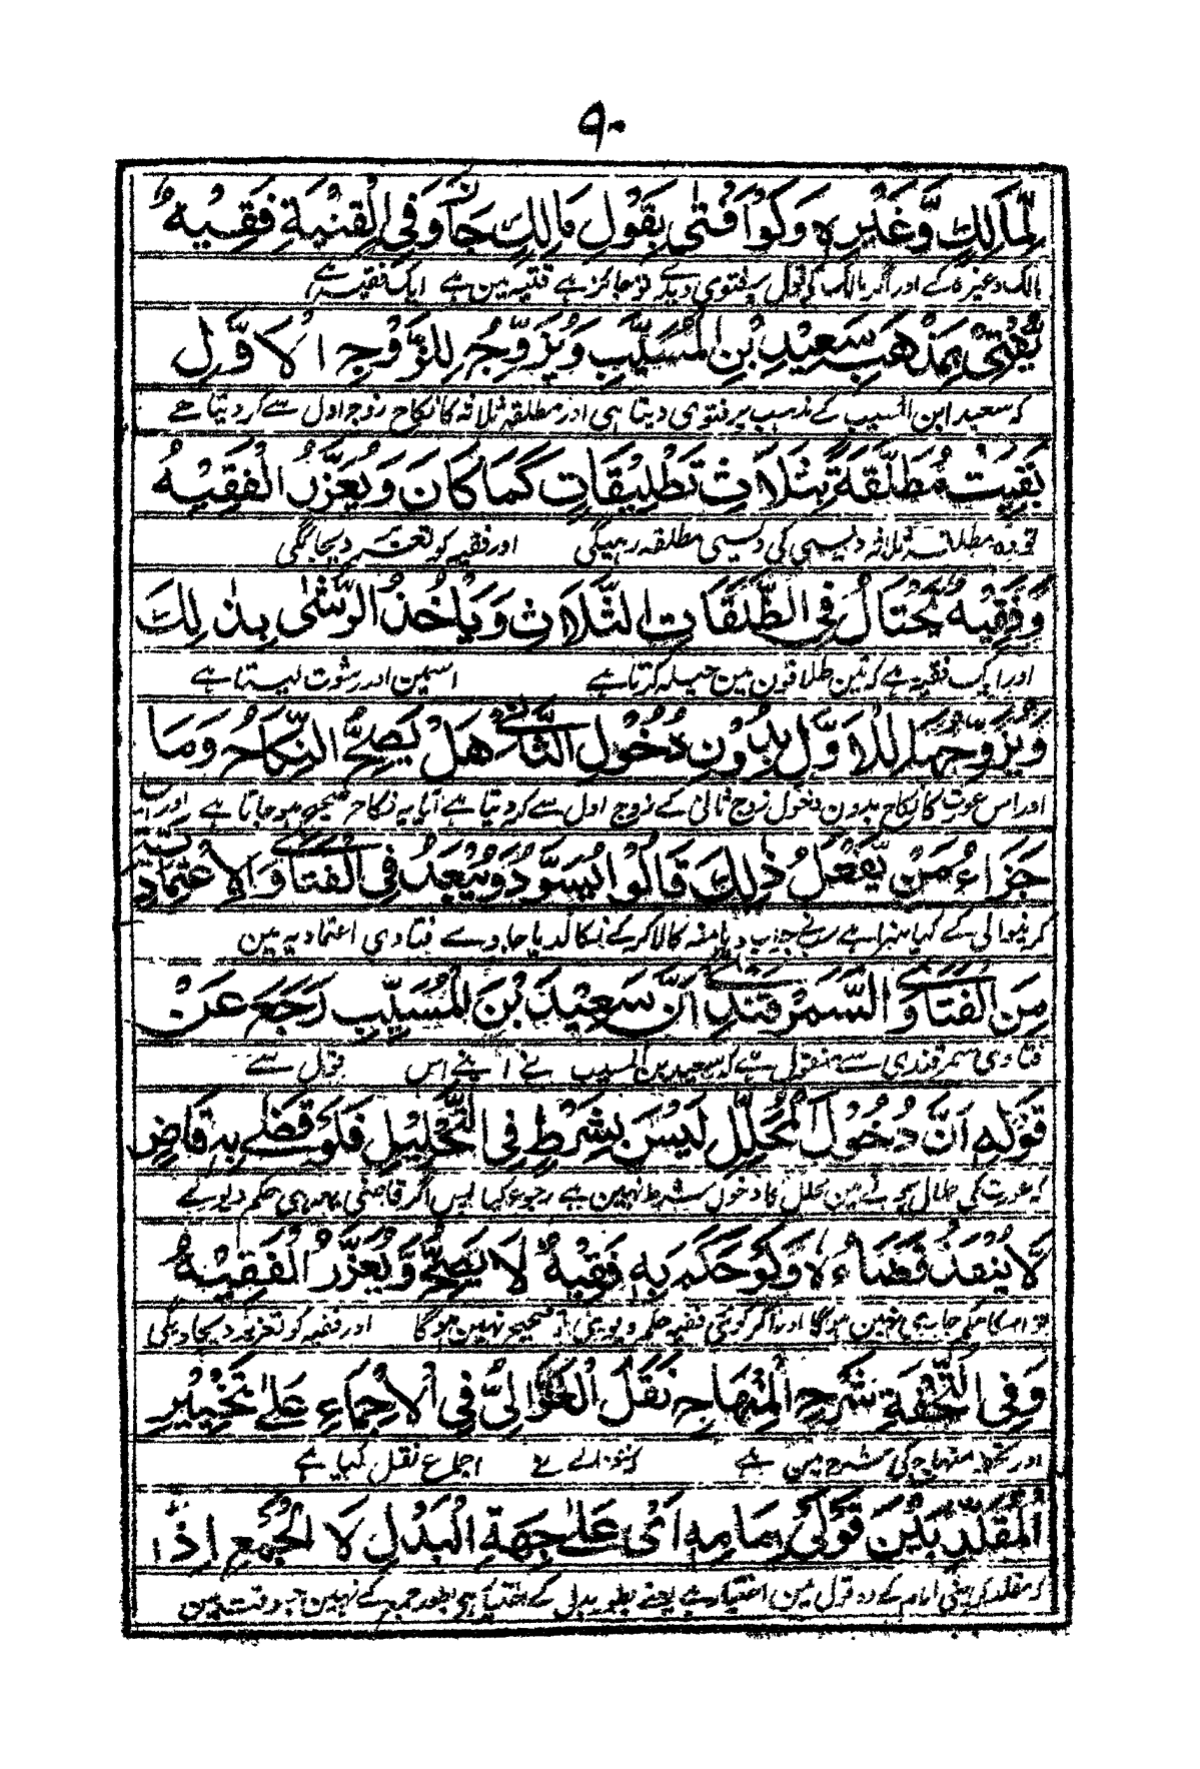 ۹۰
لِّمَالِكٍ وَّغَيْرِهٖ وَلَوْ اَفْتٰى بِقَوْلِ مَالِكٍ جَازَ وَفِي الْقِنْيَةِ فَقِيْهٌ
مالک وغیرہ کے اور اگر مالک کی قول پر فتوی دیوے تو جائز ہے قنیہ مین ہے ایک فقیہ ہے
يُفْتِىْ بِمَذْهَبِ سَعِيْدِ بْنِ الْمُسَيِّبِ وَيُزَوِّجُ لِلزَّوْجِ الْاَوَّلِ
کہ سعید ابن المسیب کے مذہب پر فتوی دیتا ہی اور مطلقہ ثلاثہ کا نکاح زوج اول سے کر دیتا ہے
بَقِيَتْ مُطَلَّقَةً بِثَلَاثِ تَطْلِيْقَاتٍ كَمَا كَانَ وَيُعَزَّرُ الْفَقِيْهُ
تو وہ مطلقہ ثلاثہ ویسی کی ویسی مطلقہ رہیگی اور فقیہ کو تعزیر دیجائیگی
وَفَقِيْهٌ يَحْتَالُ فِي الطَّلَقَاتِ الثَّلَاثِ وَيَاْخُذُ الرُّشٰى بِذٰلِكَ
اور ایک فقیہ ہے کہ تین طلاقون مین حیلہ کرتا ہے اسمین اور رشوت لیتا ہے
وَيُزَوِّجُهَا لِلْاَوَّلِ بِدُوْنِ دُخُوْلِ الثَّانِىْ هَلْ يَصِحُّ النِّكَاحُ وَمَا
اور اس عورت کا نکاح بدون دخول زوج ثانی کے زوج اول سے کر دیتا ہے آیا یہ نکاح صحیح ہو جاتا ہے اور
جَزَاءُ مَنْ يَّفْعَلُ ذٰلِكَ قَالُوْا يُسَوَّدُ وَيُبْعَدُ فِى الْفَتَاوَى الْاِعْتِمَادِيَّةِ
کرنیوالی کے کیا سزا ہے سب نے جواب دیا منہ کالا کر کے نکالدیا جاوے فتاوی اعتمادیہ مین
مِنَ الْفَتَاوَى السَّمَرْقَنْدِىْ اَنَّ سَعِيْدَ بْنَ الْمُسَيِّبِ رَجَعَ عَنْ
فتاوی سمرقندی سے منقول ہے کہ سعید بن المسیب نے اپنے اس قول سے
قَوْلِهٖ اَنَّ دُخُوْلَ الْمُحَلِّلِ لَيْسَ بِشَرْطٍ فِى التَّحْلِيْلِ فَلَوْ قَضٰى بِهٖ قَاضٍ
کہ عورت کی حلال ہونے مین محلل کا دخول شرط نہین ہے رجوع کیا پس اگر قاضی حکم دیوے
لَّا يَنْفُذُ قَضَاءُهٗ وَلَوْ حَكَمَ بِهٖ فَقِيْهٌ لَا يَصِحُّ وَيُعَزَّرُ الْفَقِيْهُ
تو اسکا حکم جاری نہین ہوگا اور اگر کوئی فقیہ حکم دیوے تو صحیح نہین ہوگا اور فقیہ کو تعزیر دیجاویگی
وَفِى التُّحْفَةِ شَرْحِ الْمِنْهَاجِ نَقَلَ الْغَزَالِىُّ فِى الْاِجْمَاعِ عَلٰى تَخْيِيْرِ
اور تحفہ منہاج کی شرح مین ہے کہ غزالی نے اجماع نقل کیا ہے
الْمُقَلِّدِ بَيْنَ قَوْلَىْ اِمَامِهٖ اَىْ عَلٰى جِهَةِ الْبَدَلِ لَا الْجَمْعِ اِذَا
کہ مقلد کو اپنی امام کے دو قول مین اختیار ہے یعنے بطور بدل کے اختیار ہی بطور جمع کے نہین جسوقت مین